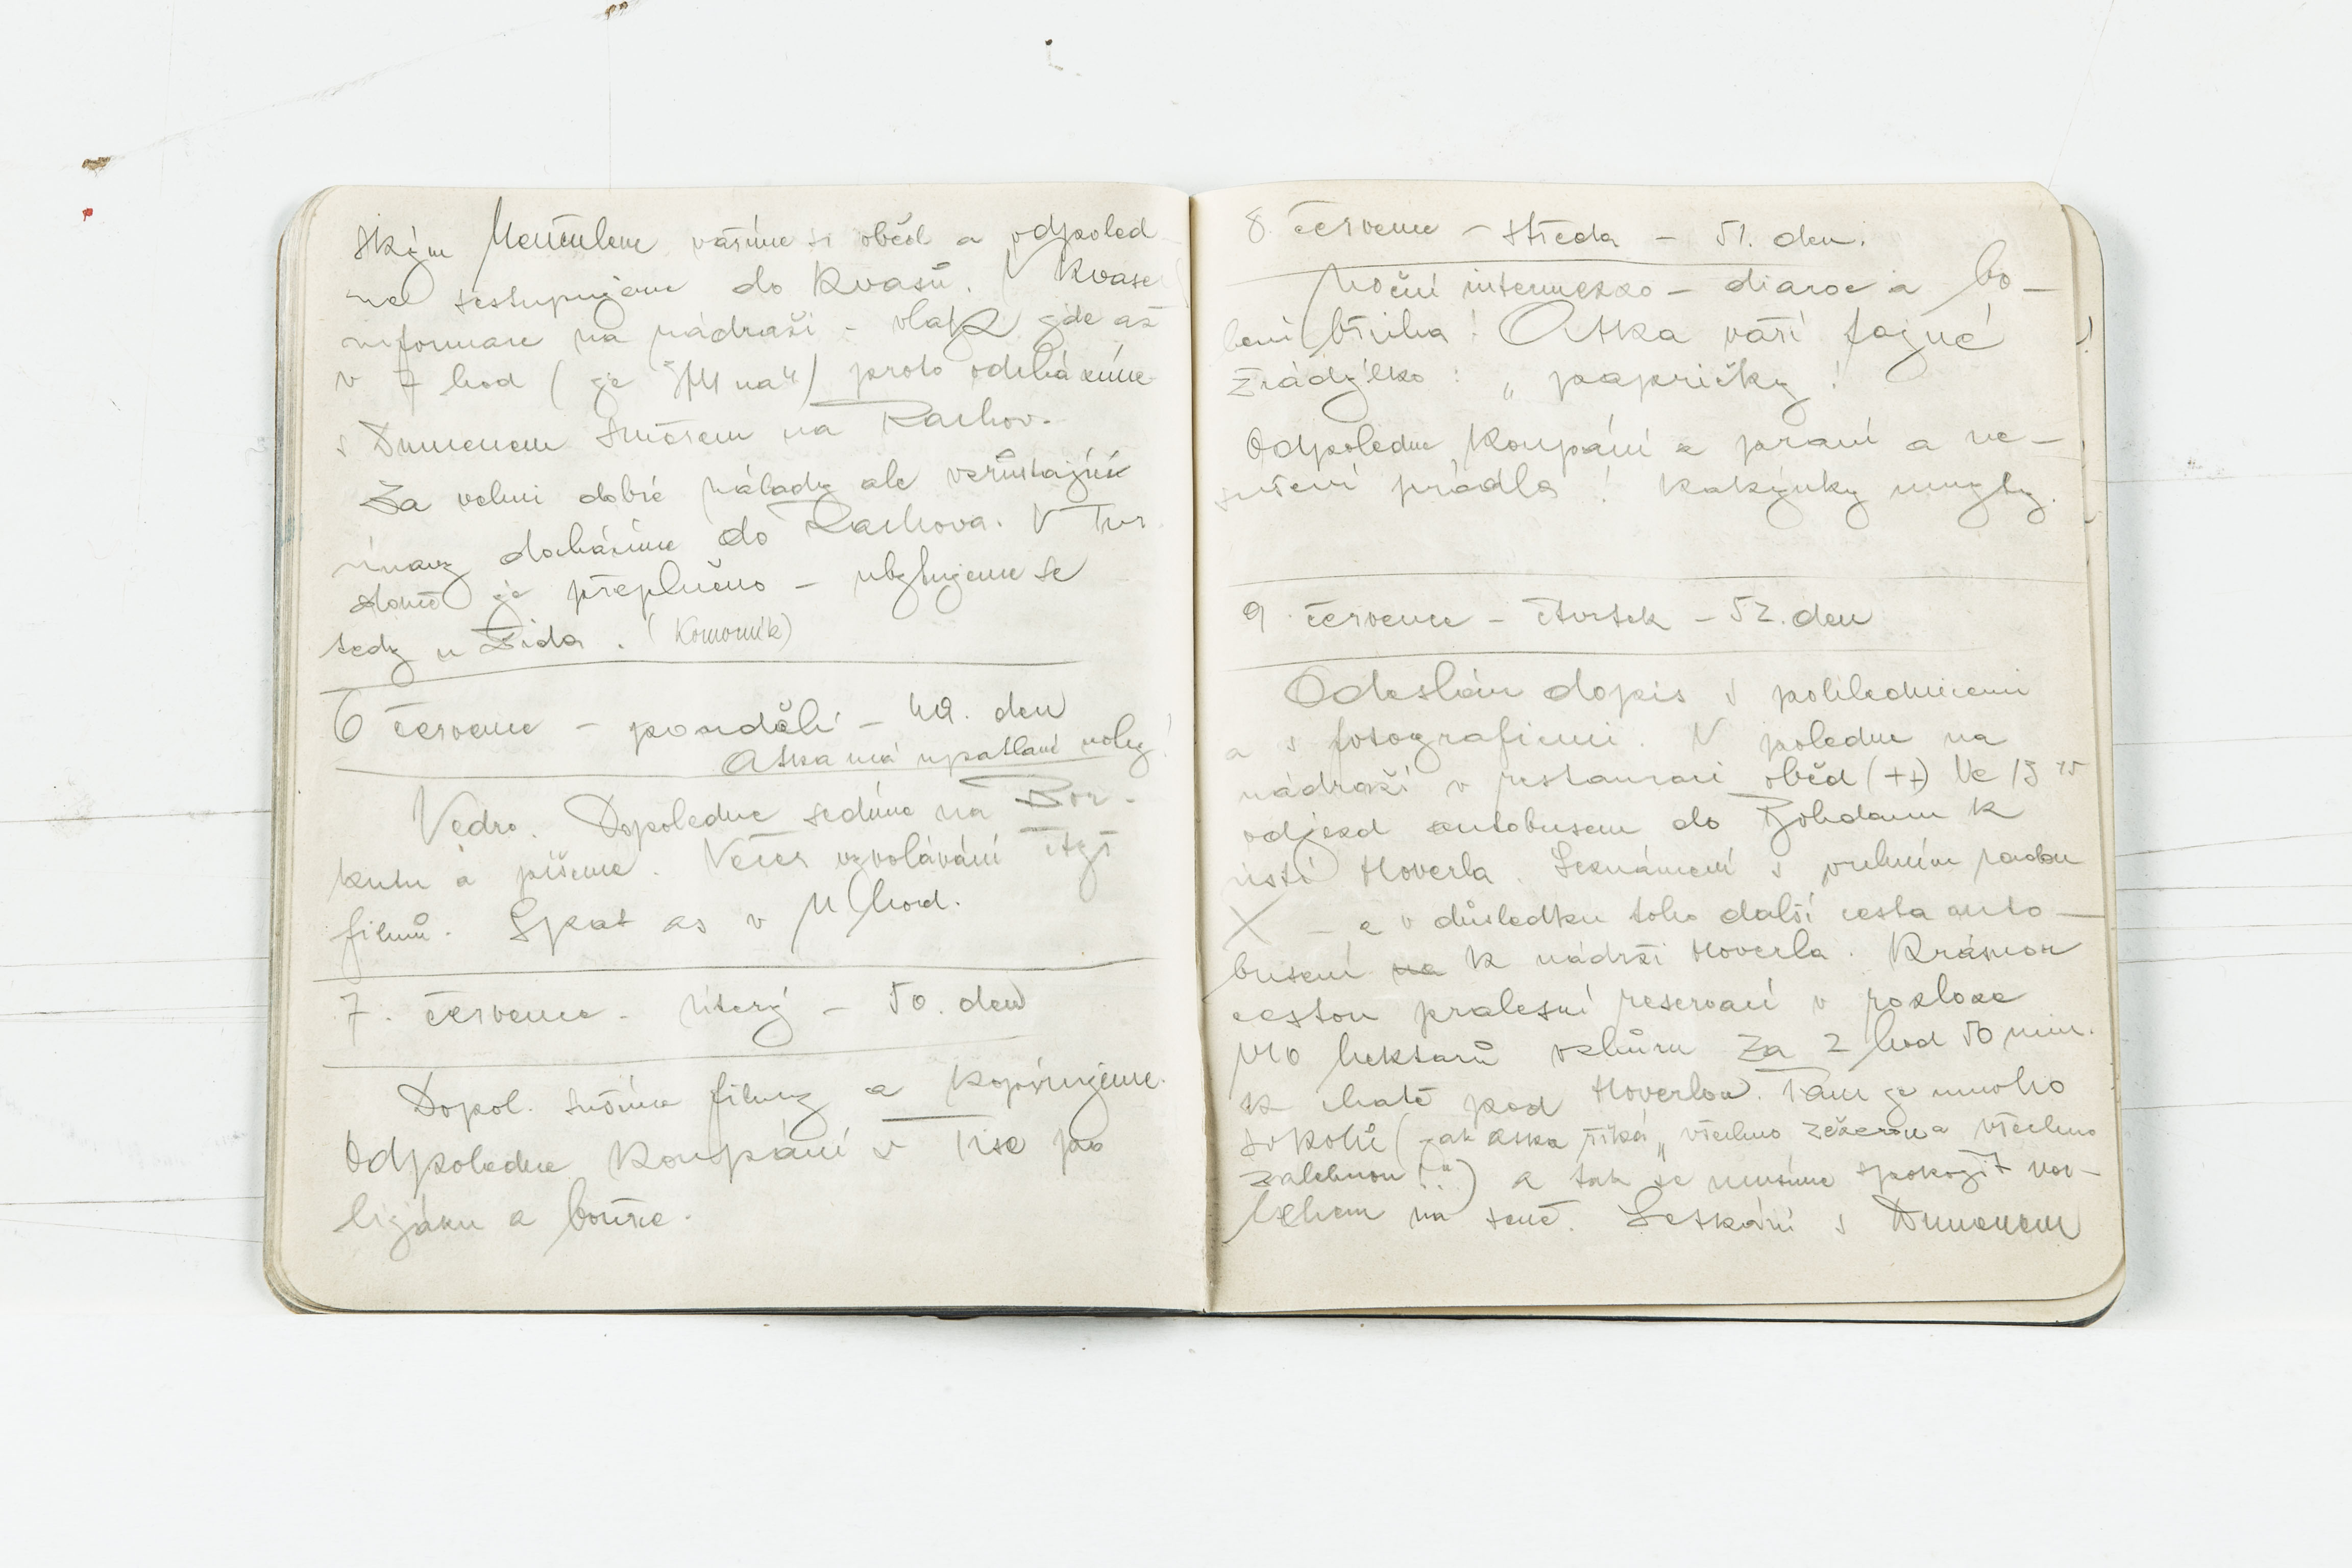 ským Menčulem vaříme si oběd a odpoled
ne sestupujeme do Kvasů. V Kvase
informace na nádraží - vlak jde až
v 7 hod (je „ na“) proto odcházíme
s Dumenem směrem na Rachov.
Za velmi dobré nálady ale vzrůstající
únavy docházíme do Rachova. V Tur.
domě je přeplněno - ubytujeme se
tedy u Žida. (Komorník)
6 července - pondělí - 49. den
Aska má upatlané nohy!
Vedro. Dopoledne sedíme na Bor-
kutu a píšeme. Večer vyvolávání čtyř
filmů. Spat as v 11 hod.
7. července - úterý - 50. den
Dopol. sušíme filmy a kopírujeme.
Odpoledne koupání v Tise po
lijáku a bouřce.
8. července - středa - 51. den.
Noční intermezzo - diaroe a bo-
lení břicha! Aska vaří fajné
žrádýlko: „ papričky!
Odpoledne koupání a praní a ne-
sušení prádla! Kakýnky umyty.
9. července - čtvrtek - 52. den
Odeslán dopis s pohlednicemi
a s fotografiemi. V poledne na
nádraží v restauraci oběd (++) Ve 15 15
odjezd autobusem do Bohdanu k
ústí Hoverla. Seznámení s vrchním radou
X - a v důsledku toho další cesta auto-
busem na k nádrži Hoverla. Krásnou
cestou pralesní reservací v rozloze
hektarů vzhůru za 2 hod 50 min.
k chatě pod Hoverlou. Tam je mnoho
sokolů (jak Aska říká „všechno zežerou a všechno
zalehnou“!!) a tak se musíme spokojit noc-
lehem na seně. Setkání s Dumenem